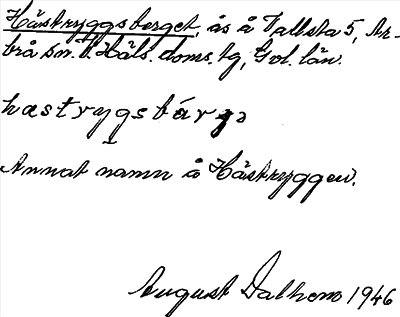 Hästryggsberget, ås å Vallsta 5, Ar-
brå sn. V. Häls. doms. tg, Gvl. län.
hastrygsbárgə
Annat namn å Hästryggen.
August Dalhem 1946